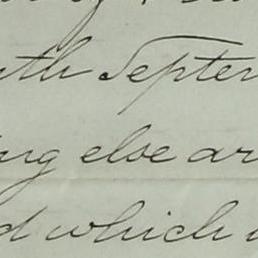 th Septem
ng else ar
d which